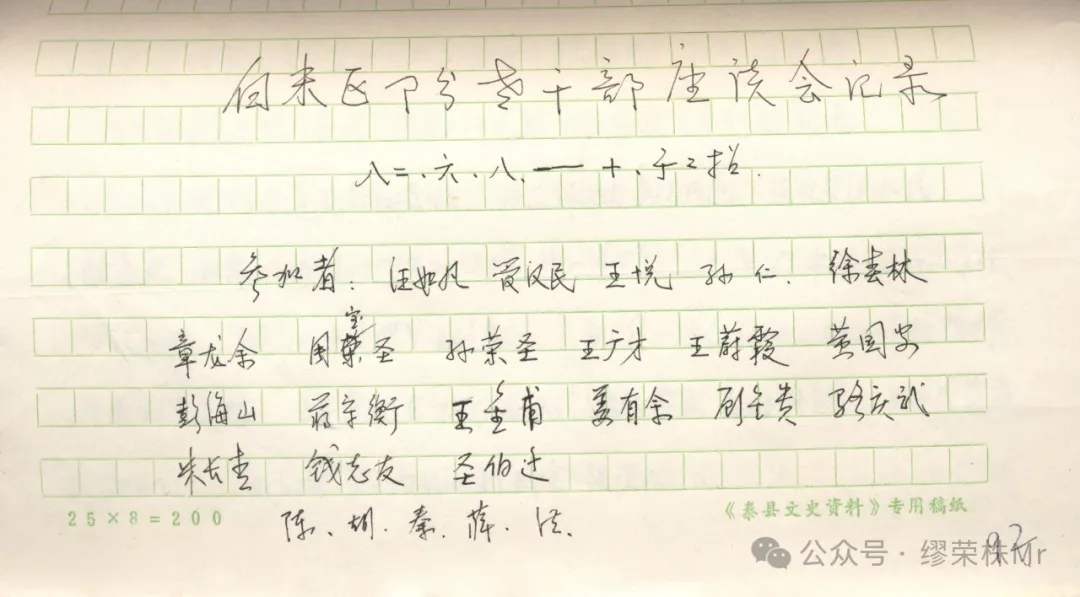 白米区部分老干部座谈会记录
八二.六.八.——十.于二招.
参加者: 汪如凡 管汉民 王悦 孙仁. 徐春林
章龙余 周宝圣 孙荣圣 王广才 王蔚霞 黄国安
彭海山 蒋宇衡 王金甫 姜有余 顾金贵 骆庆武
朱长青 钱志友 圣伯迁
陈、胡.秦.薛.洪.
25×8=200 《泰县文史资料》专用稿纸
公众号·缪荣株Mr